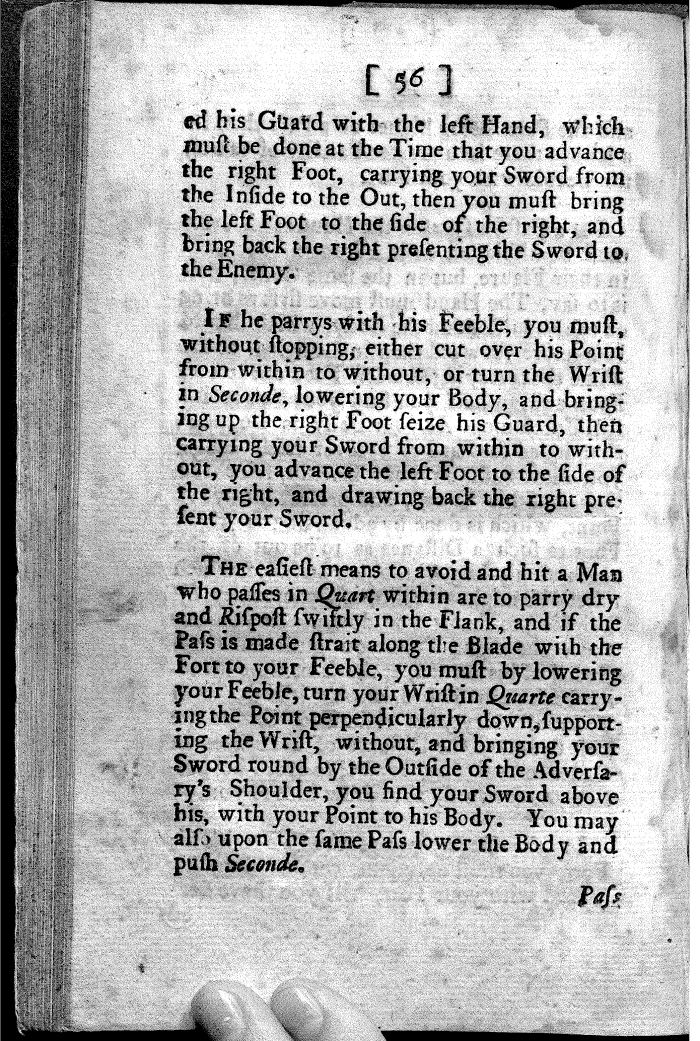 [ 56 ]
ed his Guard with the left Hand, which
muſt be done at the Time that you advance
the right Foot, carrying your Sword from
the Inſide to the Out, then you muſt bring
the left Foot to the ſide of the right, and
bring back the right preſenting the Sword to
the Enemy.
IF he parrys with his Feeble, you muſt,
without ſtopping, either cut over his Point
from within to without, or turn the Wriſt
in Seconde, lowering your Body, and bring-
ing up the right Foot ſeize his Guard, then
carrying your Sword from within to with-
out, you advance the left Foot to the ſide of
the right, and drawing back the right pre-
ſent your Sword.
THE eaſieſt means to avoid and hit a Man
who paſſes in Quart within are to parry dry
and Riſpoſt ſwiftly in the Flank, and if the
Paſs is made ſtrait along the Blade with the
Fort to your Feeble, you muſt by lowering
your Feeble, turn your Wriſt in Quarte carry-
ing the Point perpendicularly down, ſupport-
ing the Wriſt, without, and bringing your
Sword round by the Outſide of the Adverſa-
ry's Shoulder, you find your Sword above
his, with your Point to his Body. You may
alſo upon the ſame Paſs lower the Body and
puſh Seconde.
Paſs